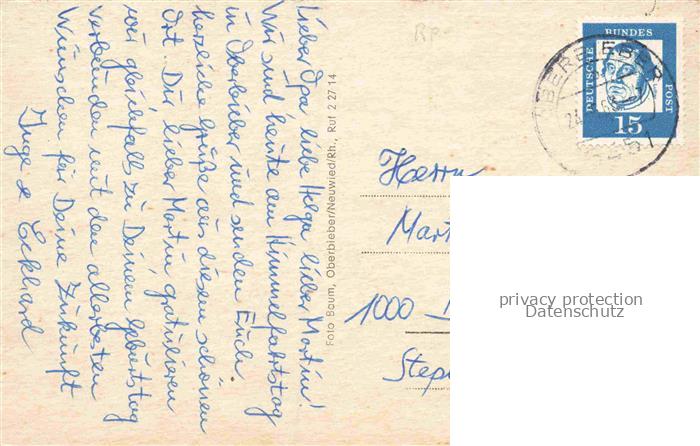 Lieber Opa, liebe Helga, lieber Martin!
Wir sind heute am Himmelfahrtstag
in Oberbieber und senden Euch
herzliche Grüße aus diesem schönen
Ort. Dir lieber Martin gratulieren
wir gleichfalls zu Deinem Geburtstag
verbunden mit den allerbesten
Wünschen für Deine Zukunft
Inge & Eckhard
Foto Baum, Oberbieber/Neuwied/Rh., Ruf 2 27 14
Rp-
DEUTSCHE
BUNDES
POST
15
OBERBIEBER
5451
Herrn
Mart
1000
Step
privacy protection
Datenschutz